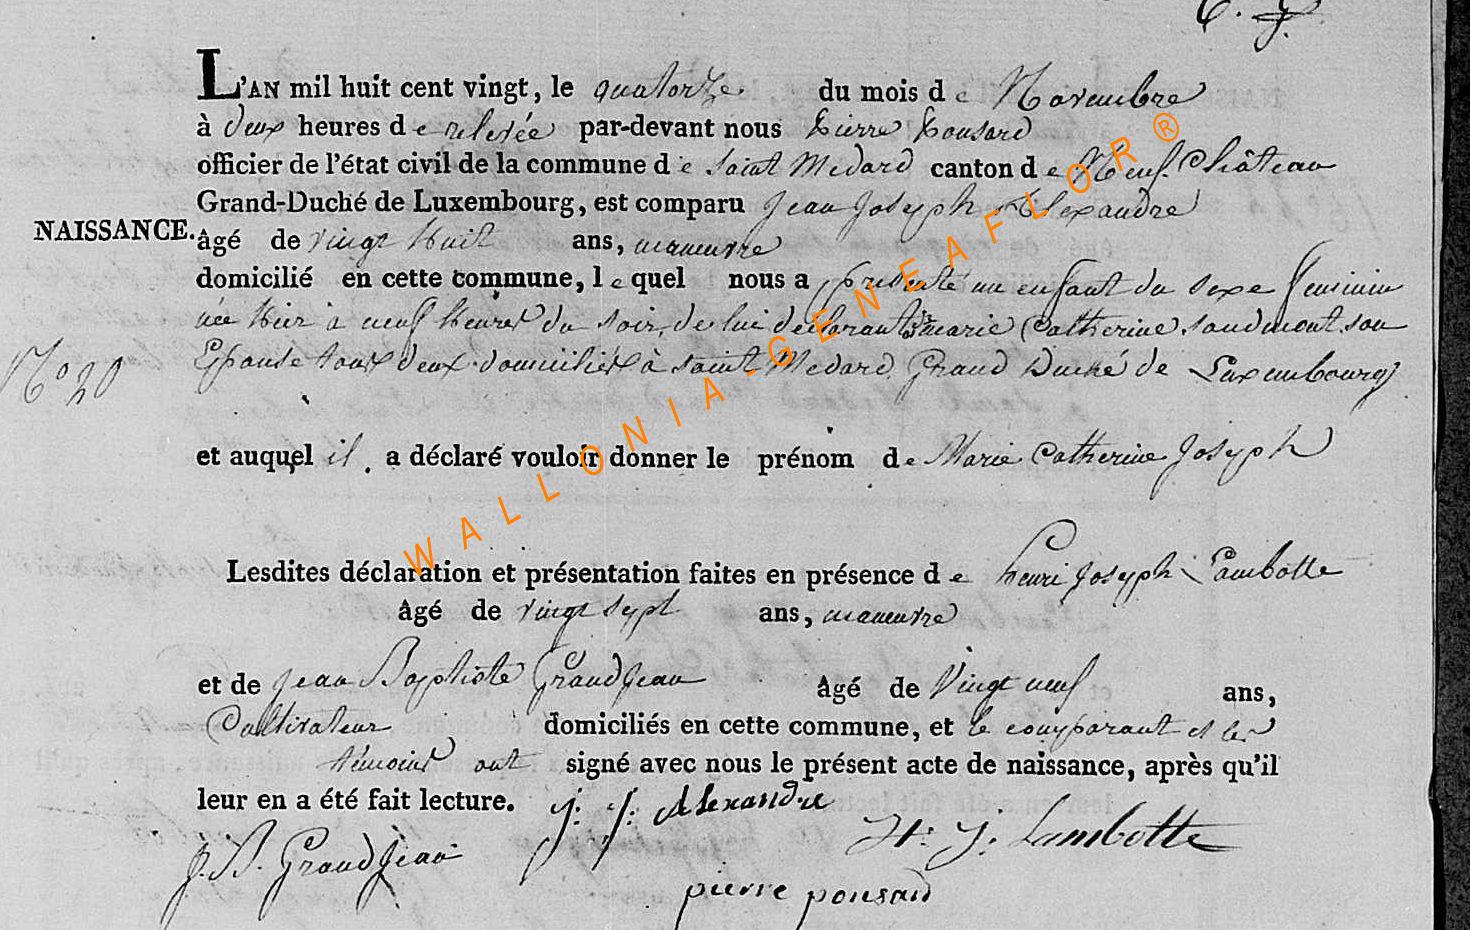 L'AN mil huit cent vingt, le quatorze du mois de Novembre
à deux heures de relevée par-devant nous Pierre Ponsard
officier de l'état civil de la commune de Saint Medard canton de Neufchâteau
Grand-Duché de Luxembourg, est comparu Jean Joseph Alexandre
NAISSANCE. âgé de vingt huit ans, maneuvre
domicilié en cette commune, lequel nous a presenté un enfant du sexe feminin
née hier à neuf heures du soir, de lui declarant et marie Catherine, son
N° 20 Epouse tous deux domiciliés à saint Medard, Grand Duché de Luxembourg
et auquel il a déclaré vouloir donner le prénom de Marie Catherine Joseph
Lesdites déclaration et présentation faites en présence de henri Joseph Lambotte
âgé de vingt sept ans, maneuvre
et de Jean Baptiste Grandjean âgé de Vingt neuf ans,
Cultivateur domiciliés en cette commune, et le comparant et les
témoins ont signé avec nous le présent acte de naissance, après qu'il
leur en a été fait lecture. J: J: Alexandre
H: J: Lambotte
J. B. Grandjean
pierre ponsard
WALLONIA-GENEAFLOR®